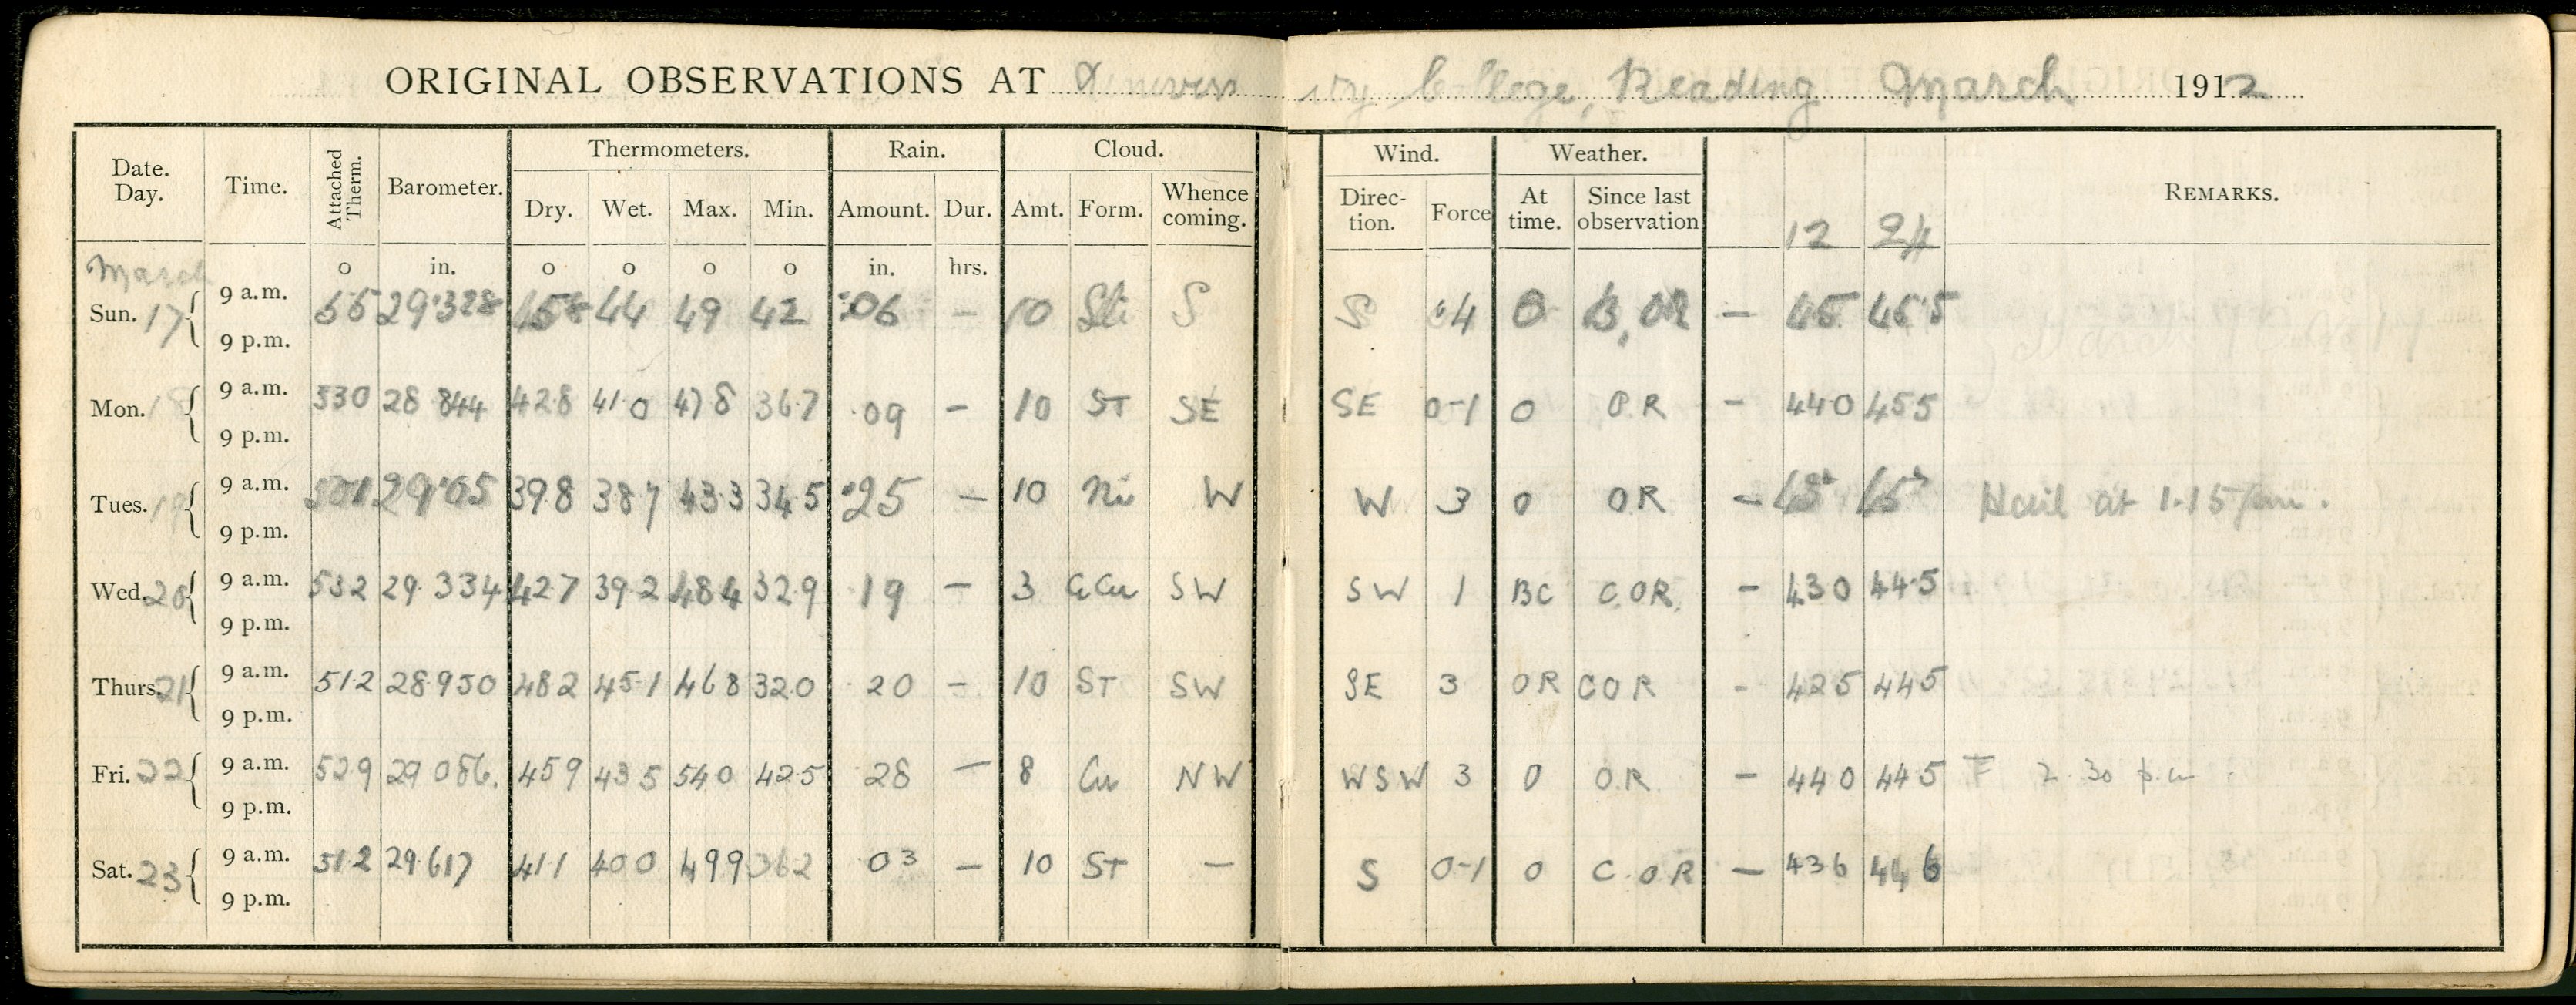 ORIGINAL OBSERVATIONS AT University College, Reading March 1912
Date. Day. Time. Attached Therm. Barometer. Thermometers. Rain. Cloud. Wind. Weather. REMARKS.
Dry. Wet. Max. Min. Amount. Dur. Amt. Form. Whence coming. Direc- tion. Force At time. Since last observation 12 24
March o in. o o o o in. hrs.
Sun. 17 9 a.m. 55 29.328 44 49 42 .06 - 10 S S 4 O B, OR - 45 45.5
9 p.m.
Mon. 18 9 a.m. 530 28 844 42.8 41.0 47 8 36.7 .09 - 10 ST SE SE 0-1 O O.R - 44.0 45 5
9 p.m.
Tues. 19 9 a.m. 501 29.05 39.8 38 7 43.3 34.5 .25 - 10 Ni W W 3 O OR - 45 45 Hail at 1.15 pm.
9 p.m.
Wed. 20 9 a.m. 53 2 29.334 42.7 39 2 48 4 32.9 19 - 3 SW SW 1 BC C.OR. - 43 0 44.5
9 p.m.
Thurs. 21 9 a.m. 51.2 28.950 48 2 45.1 46 8 32.0 20 - 10 ST SW SE 3 OR COR - 42 5 44 5
9 p.m.
Fri. 22 9 a.m. 52.9 29 086. 45 9 43 5 54 0 42.5 28 - 8 Cu NW WSW 3 O O.R. - 44 0 44.5 F 2.30 p.m
9 p.m.
Sat. 23 9 a.m. 51.2 29.617 41 1 40 0 49 9 36 2 .03 - 10 ST - S 0-1 O C.OR - 43 6 44 6
9 p.m.